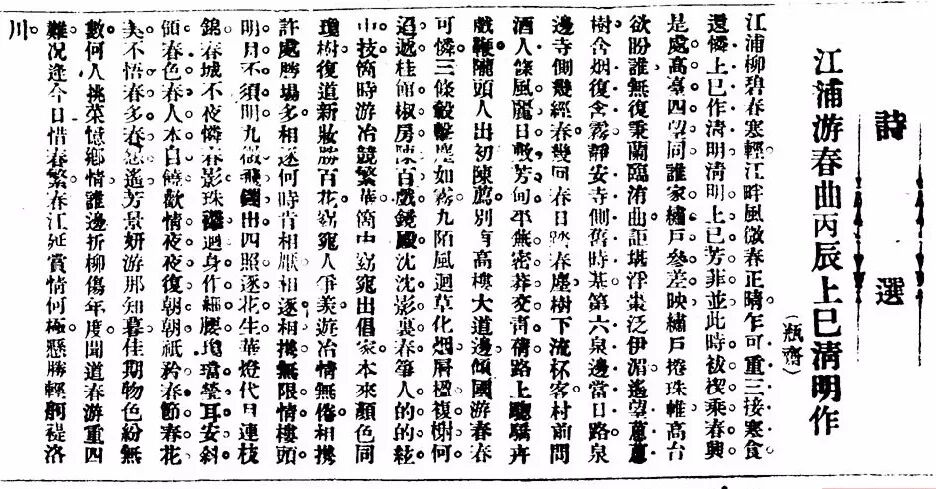 詩選
江浦游春曲丙辰上巳清明作
(瓶齋)
江浦柳碧春寒輕。江畔風微春正晴。乍可重三接寒食。
還憐上巳作清明。清明上巳芳菲並。此時祓禊乘春興。
是處高臺四望同。誰家繡戶參差映。繡戶捲珠帷。高台
欲盼誰。無復秉蘭臨洧曲。詎堪浮棗泛伊湄。遙望蔥蔥
樹。含烟復含霧。靜安寺側舊時基。第六泉邊當日路。泉
邊寺側幾經春。幾回春日踏春塵。樹下流杯客。村前問
酒人。條風麗日敷芳甸。平蕪密莽交青蒨。路上驄驕卉
戲鞭。隴頭人出初陳薦。別有高樓大道邊。傾國游春春
可憐。三條轂擊塵如霧。九陌風迴草化烟。層楹複榭何
迢遞。桂館椒房陳百戲。鏡殿沈沈影裏春。箏人的的絃
中技。箇時游冶競繁華。箇中窈窕出倡家。本來顏色同
瓊樹。復道新妝勝百花。窈窕人爭羨。遊冶情無倦。相携
許處勝場多。相逐何時肯相厭。相逐相携無限情。樓頭
明月不須明。九微飛鑽出四照。逐花生華燈代月連枝
錦。春城不夜憐春影。珠襻迴身作細腰。瑰瑩耳安斜
領。春色春人本自饒。歡情夜夜復朝朝。祇矜春節春花
美。不悟春多春愁遙。芳景妍游那知暮。佳期物色紛無
數。何人挑菜憶鄉情。誰邊折柳傷年度。聞道春游重四
難。况逢今日惜春繁。春江延賞情何極。懸勝輕舸禊洛
川。